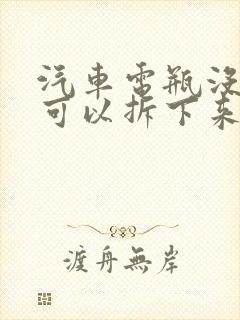 汽車電瓶沒
可以拆下來
渡舟無岸